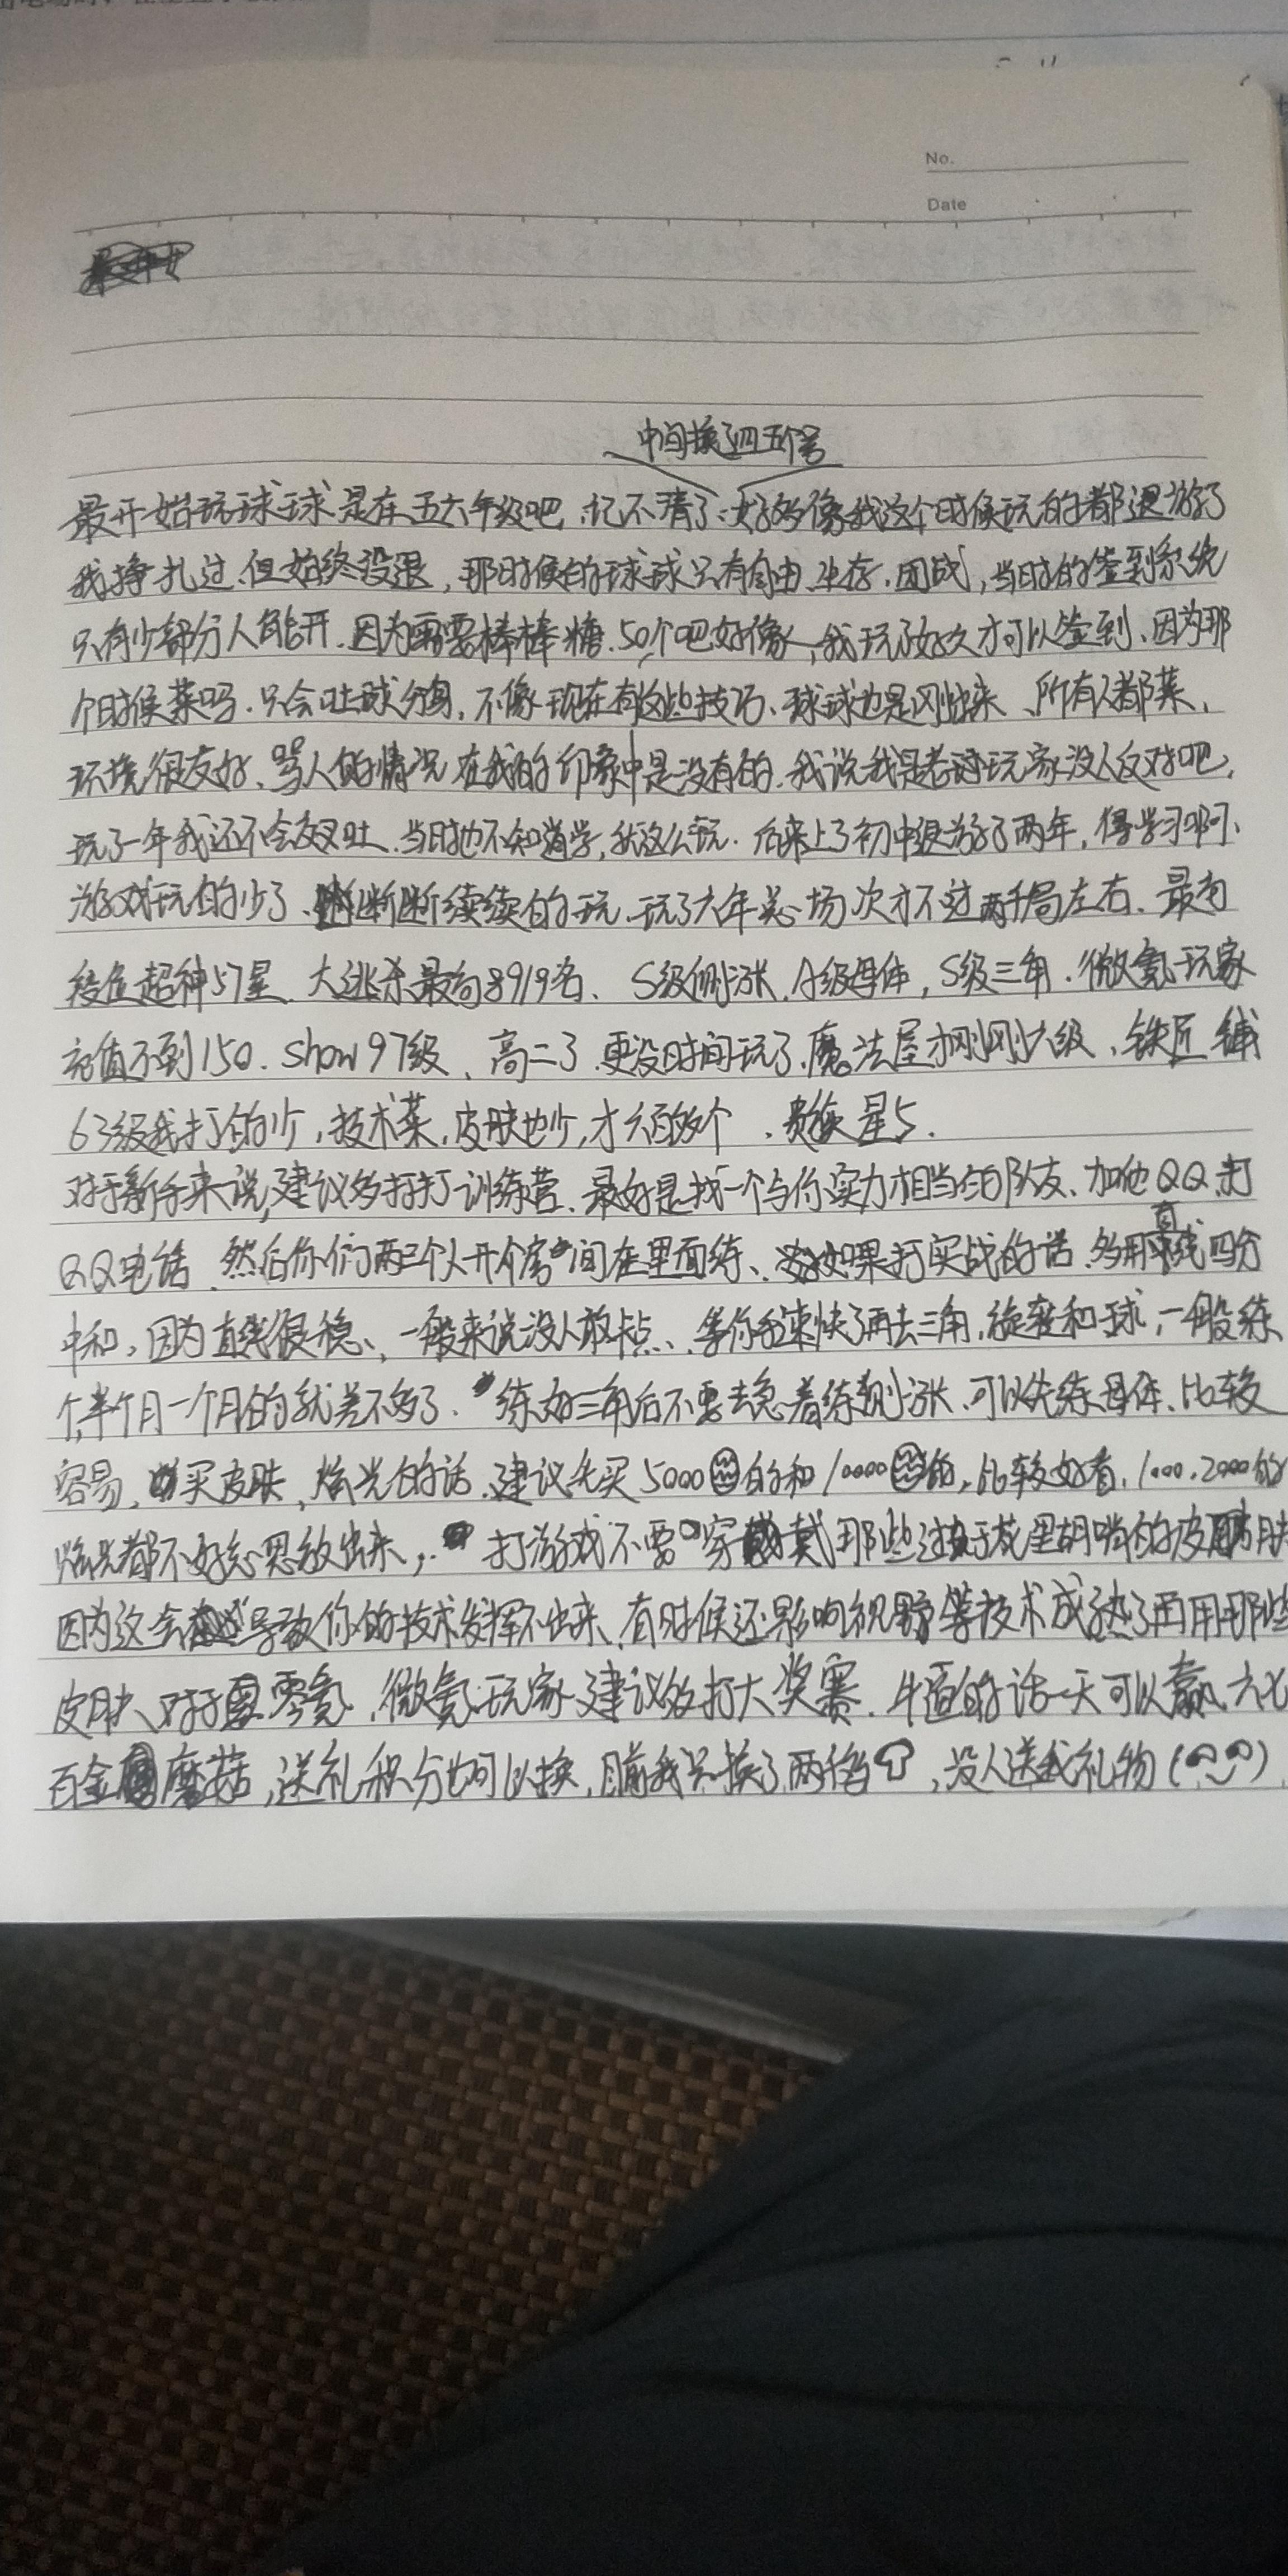 No.
Date
中间换了四五个号
最开始玩球球是在五六年级吧、记不清了、好多像我这个时候玩的都退游了
我挣扎过、但始终没退，那时候的球球只有自由、生存、团战，当时的签到系统
只有少部分人能开、因为需要棒棒糖、50个吧好像，我玩了好久才可以签到、因为那
个时候菜吗、只会吐球分身，不像现在有这些技巧、球球也是刚出来、所有人都菜、
环境很友好、骂人的情况在我的印象中是没有的、我说我是老玩家没人反对吧，
玩了一年我还不会交叉吐、当时也不知道学，就这么玩、后来上了初中退游了两年，得学习啊、
游戏玩的少了、断断续续的玩、玩了六年总场次才不过两千局左右、最高
段位超神57星、大逃杀最高8919名、S级侧涨、A级母体，S级三角、微氪玩家
充值不到150、show97级、高二了、更没时间玩了、魔法屋才刚刚六级、铁匠铺
63级我打的少，技术菜，皮肤也少，才六百多个、贵族星5.
对于新手来说，建议多打打训练营、最好是找一个与你实力相当的队友、加他QQ、打
QQ电话、然后你们两三个人开个房间在里面练、如果打实战的话、多用直线四分
中和，因为直线很稳、一般来说没人敢卡点、等你手速快了再去三角，旋转和球，一般练
个半个月一个月的就差不多了、练好三角后不要去急着练侧涨、可以先练母体、比较
容易、买皮肤、炫光的话、建议先买5000的和10000的，比较好看，1000、2000的
炫光都不好意思放出来，打游戏不要穿戴那些过于花里胡哨的皮肤
因为这会导致你的技术发挥不出来、有时候还影响视野等技术成熟了再用那些
皮肤、对于零氪、微氪玩家、建议多打大奖赛、牛逼的话一天可以赢六七
百金蘑菇，送礼积分也可以换，目前我只换了两个，没人送我礼物